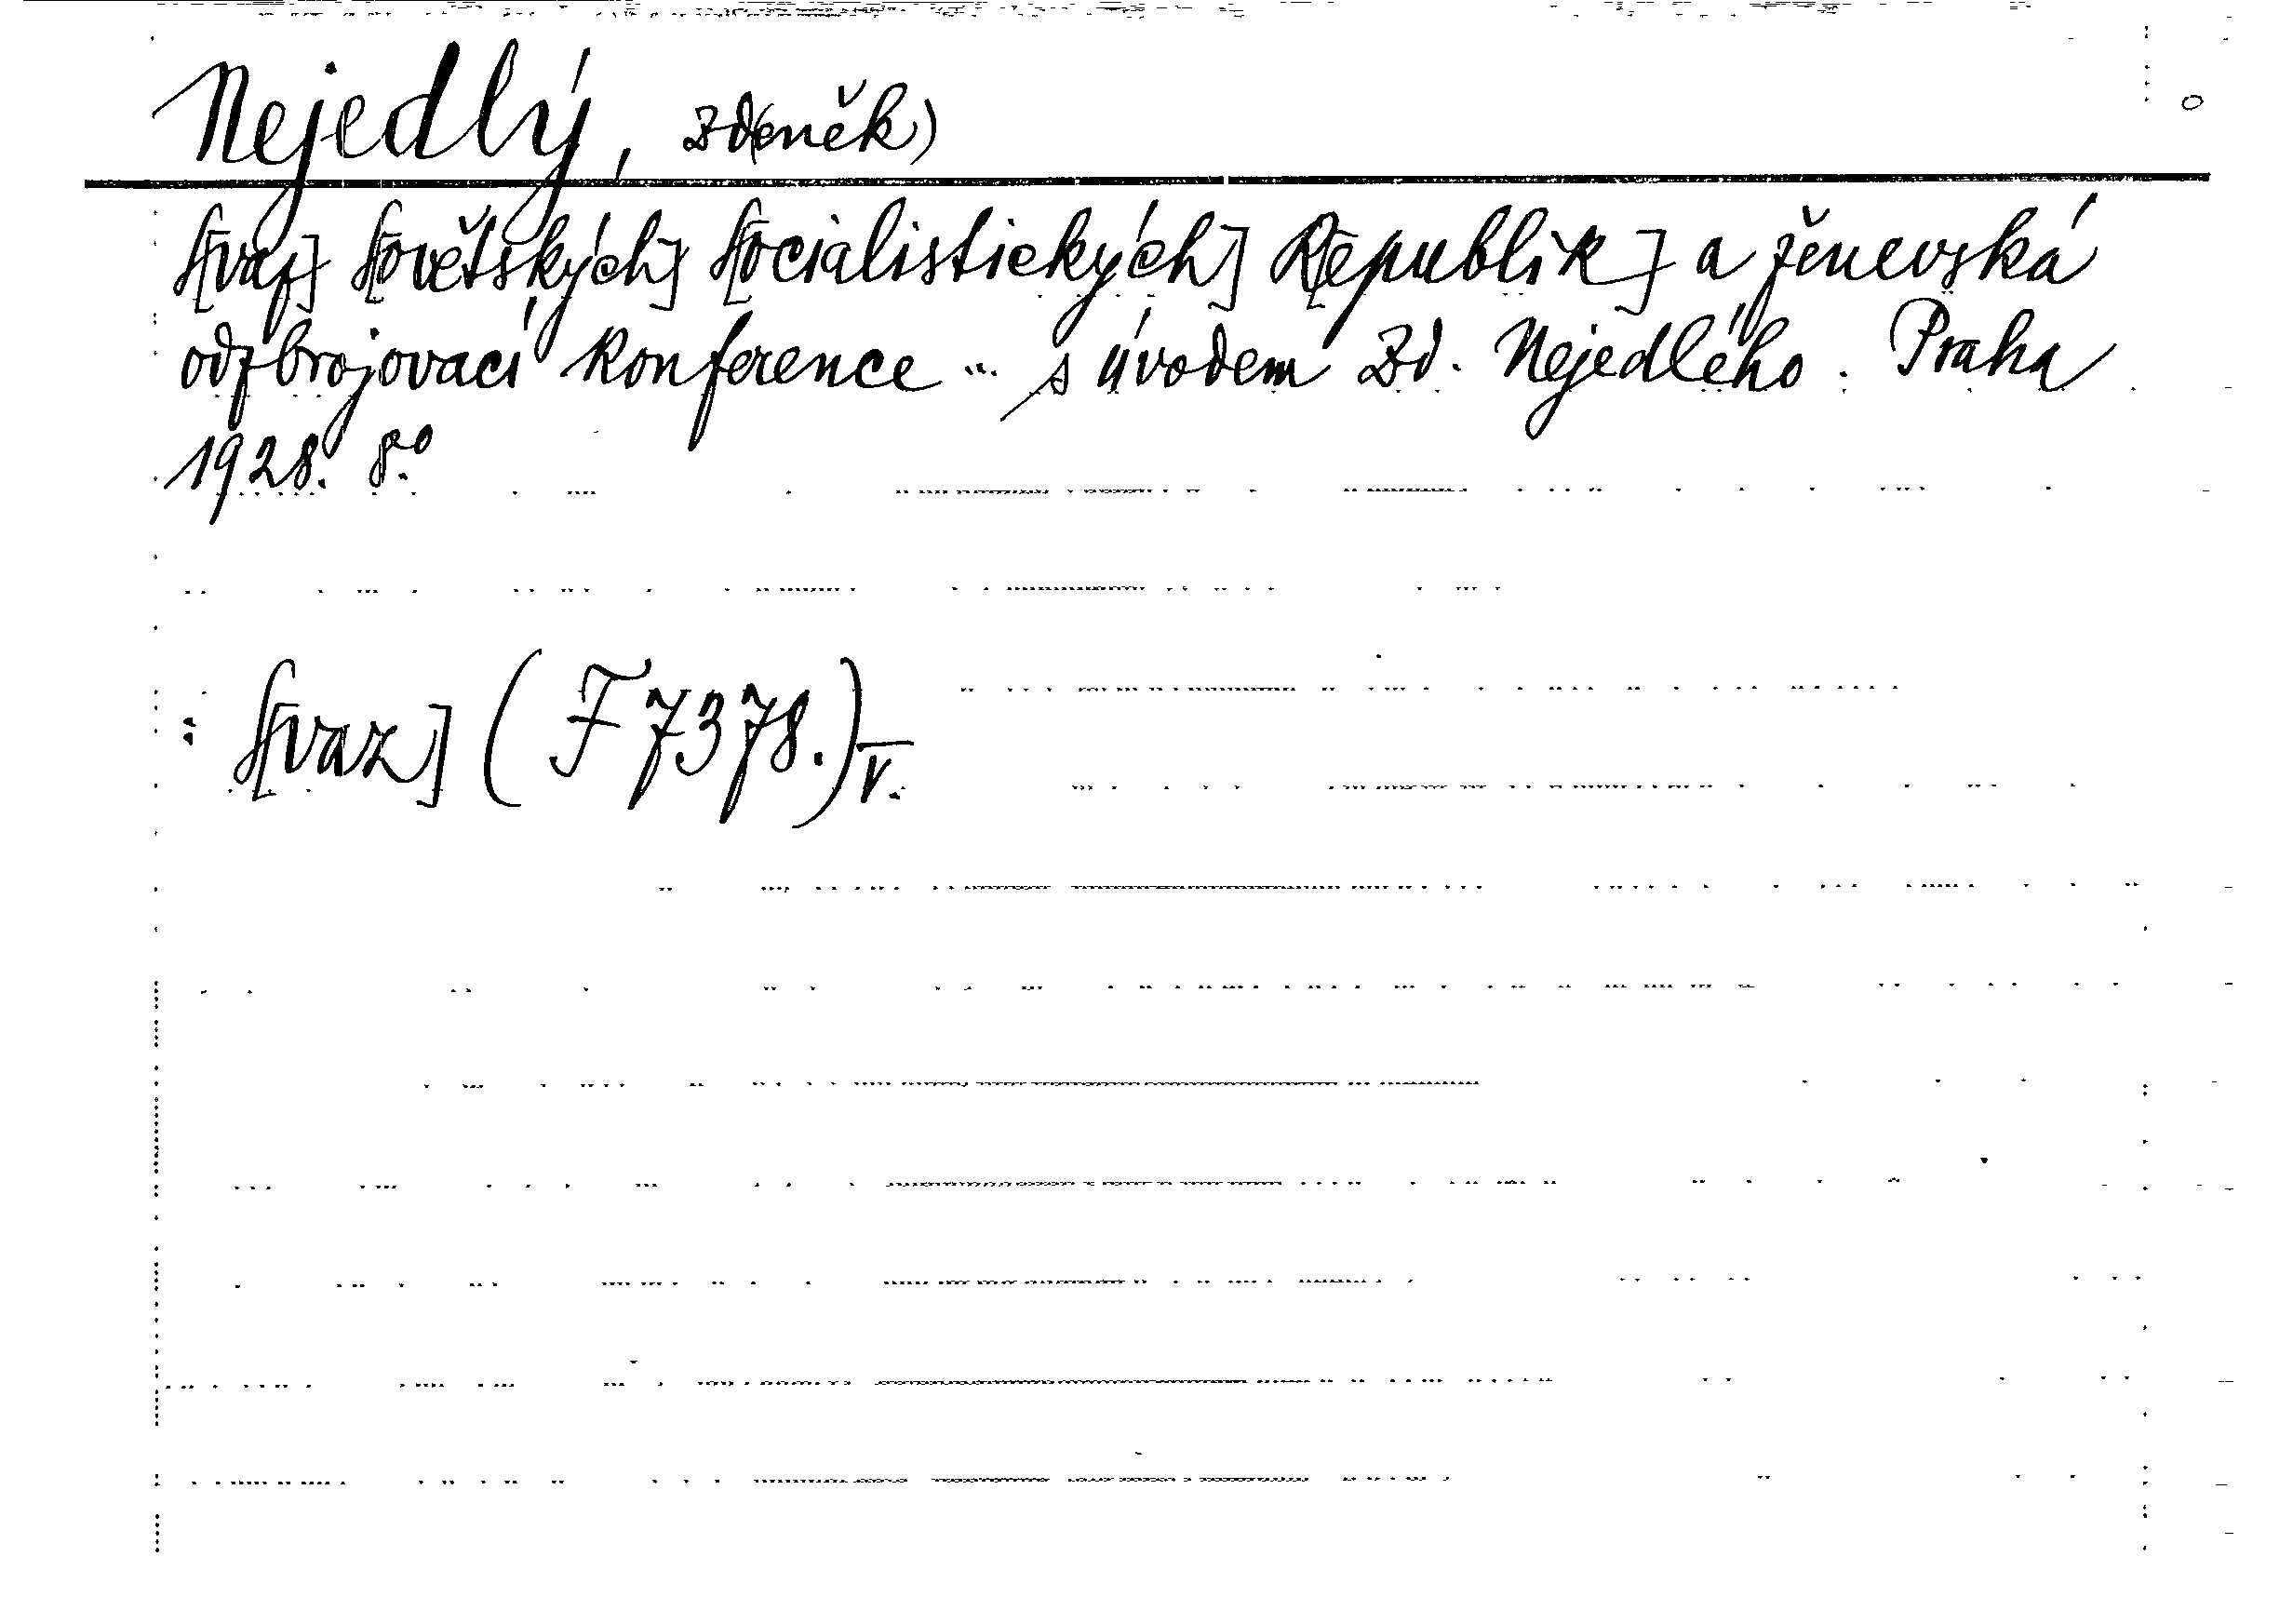 Nejedlý, Zd(eněk)
S[vaz] S[ovětských] S[ocialistických] R[epublik] a ženevská
odzbrojovací konference ... s úvodem Zd. Nejedlého. Praha
1928. 8.º
: S[vaz] (F 7378.) V.